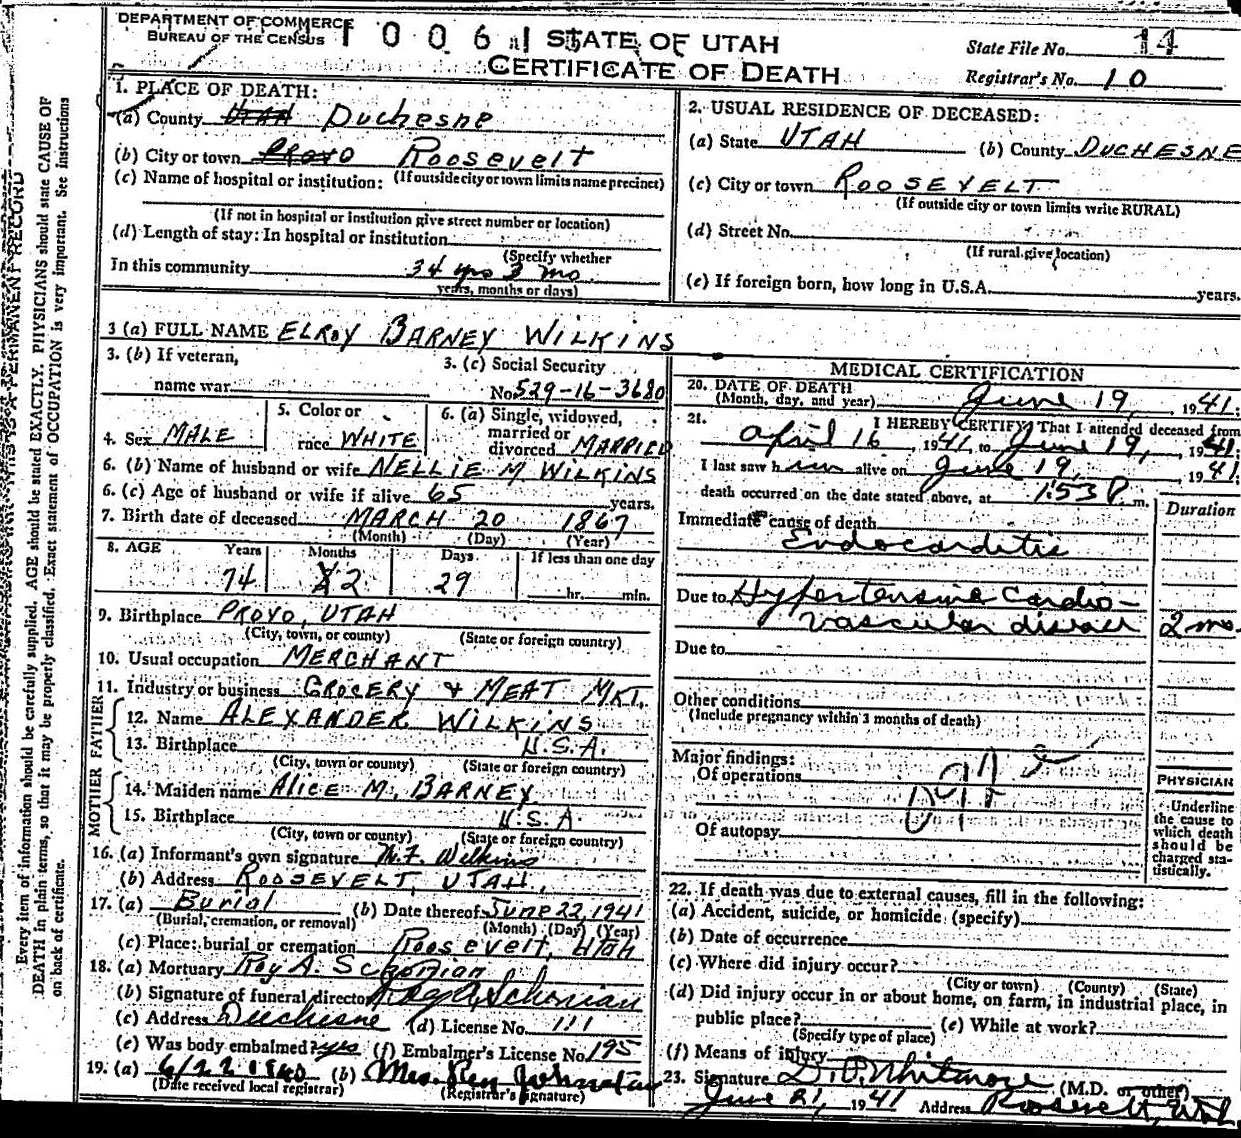 DEPARTMENT OF COMMERCE
BUREAU OF THE CENSUS
1 0 0 6
STATE OF UTAH
CERTIFICATE OF DEATH
State File No. 14
Registrar's No. 10
1. PLACE OF DEATH:
(a) County UTAH Duchesne
(b) City or town PROVO Roosevelt
(If outside city or town limits name precinct)
(c) Name of hospital or institution:
(If not in hospital or institution give street number or location)
(d) Length of stay: In hospital or institution
(Specify whether
In this community 34 yrs 3 mo
years, months or days)
2. USUAL RESIDENCE OF DECEASED:
(a) State UTAH (b) County DUCHESNE
(c) City or town ROOSEVELT
(If outside city or town limits write RURAL)
(d) Street No.
(If rural give location)
(e) If foreign born, how long in U.S.A. years.
3 (a) FULL NAME ELROY BARNEY WILKINS
3. (b) If veteran,
name war
3. (c) Social Security
No. 529-16-3680
4. Sex MALE
5. Color or
race WHITE
6. (a) Single, widowed,
married or
divorced MARRIED
6. (b) Name of husband or wife NELLIE M. WILKINS
6. (c) Age of husband or wife if alive 65 years.
7. Birth date of deceased MARCH 20 1867
(Month) (Day) (Year)
8. AGE Years Months Days If less than one day
74 2 29 hr. min.
9. Birthplace PROVO, UTAH
(City, town, or county) (State or foreign country)
10. Usual occupation MERCHANT
11. Industry or business GROCERY & MEAT MKT.
FATHER
12. Name ALEXANDER WILKINS
13. Birthplace U.S.A.
(City, town or county) (State or foreign country)
MOTHER
14. Maiden name ALICE M. BARNEY
15. Birthplace U.S.A.
(City, town or county) (State or foreign country)
16. (a) Informant's own signature Wilkins
(b) Address ROOSEVELT, UTAH.
17. (a) Burial (b) Date thereof June 22, 1941
(Burial, cremation, or removal) (Month) (Day) (Year)
(c) Place: burial or cremation Roosevelt, Utah
18. (a) Mortuary Roy A. Schonian
(b) Signature of funeral director Roy A. Schonian
(c) Address Duchesne (d) License No. 111
(e) Was body embalmed? yes (f) Embalmer's License No. 195
19. (a) 6/22 1940 (b) Mrs. Johnston
(Date received local registrar) (Registrar's signature)
MEDICAL CERTIFICATION
20. DATE OF DEATH
(Month, day, and year) June 19, 1941;
21. I HEREBY CERTIFY, That I attended deceased from
April 16, 1941, to June 19, 1941;
I last saw him alive on June 19, 1941;
death occurred on the date stated above, at 1:53 P m.
Duration
Immediate cause of death
Endocarditis
Due to Hypertensive Cardio-
vascular disease 2 mo.
Due to
Other conditions
(Include pregnancy within 3 months of death)
Major findings:
Of operations
Of autopsy
PHYSICIAN
Underline
the cause to
which death
should be
charged sta-
tistically.
22. If death was due to external causes, fill in the following:
(a) Accident, suicide, or homicide (specify)
(b) Date of occurrence
(c) Where did injury occur?
(City or town) (County) (State)
(d) Did injury occur in or about home, on farm, in industrial place, in
public place? (e) While at work?
(Specify type of place)
(f) Means of injury
23. Signature Whitmore (M.D. or other)
June 21, 1941 Address Roosevelt, Utah
THIS IS A PERMANENT RECORD
Every item of information should be carefully supplied. AGE should be stated EXACTLY. PHYSICIANS should state CAUSE OF
DEATH in plain terms, so that it may be properly classified. Exact statement of OCCUPATION is very important. See instructions
on back of certificate.